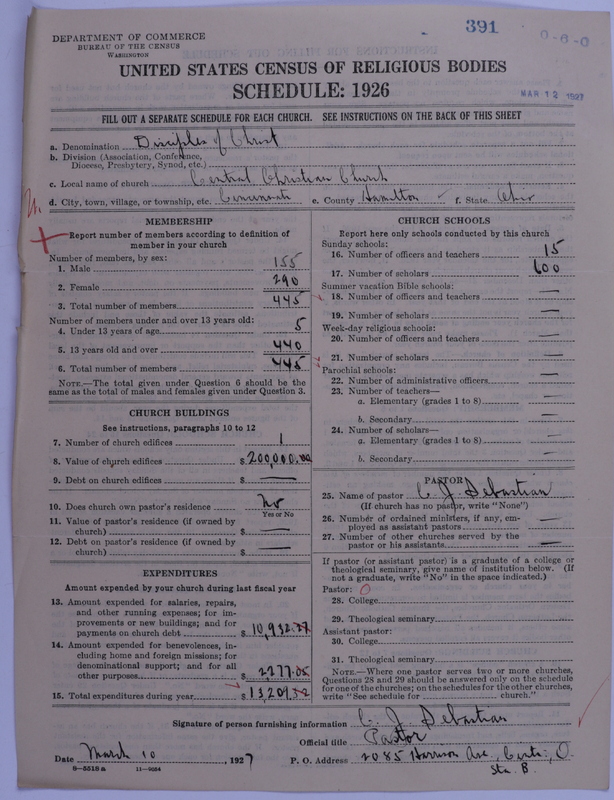 391
0-6-0
DEPARTMENT OF COMMERCE
BUREAU OF THE CENSUS
WASHINGTON
MAR 12 1927
UNITED STATES CENSUS OF RELIGIOUS BODIES
SCHEDULE: 1926
FILL OUT A SEPARATE SCHEDULE FOR EACH CHURCH. SEE INSTRUCTIONS ON THE BACK OF THIS SHEET
a. Denomination Disciples of Christ
b. Division (Association, Conference,
Diocese, Presbytery, Synod, etc.)
c. Local name of church Central Christian Church
d. City, town, village, or township, etc. Cincinnati e. County Hamilton f. State Ohio
MEMBERSHIP
Report number of members according to definition of
member in your church
Number of members, by sex:
1. Male 155
2. Female 290
3. Total number of members 445
Number of members under and over 13 years old:
4. Under 13 years of age 5
5. 13 years old and over 440
6. Total number of members 445
NOTE.—The total given under Question 6 should be the
same as the total of males and females given under Question 3.
CHURCH BUILDINGS
See instructions, paragraphs 10 to 12
7. Number of church edifices 1
8. Value of church edifices $200,000.00
9. Debt on church edifices $ —
10. Does church own pastor's residence No
Yes or No
11. Value of pastor's residence (if owned by
church) $ —
12. Debt on pastor's residence (if owned by
church) $ —
EXPENDITURES
Amount expended by your church during last fiscal year
13. Amount expended for salaries, repairs,
and other running expenses; for im-
provements or new buildings; and for
payments on church debt $10,932.27
14. Amount expended for benevolences, in-
cluding home and foreign missions; for
denominational support; and for all
other purposes $2277.05
15. Total expenditures during year $
CHURCH SCHOOLS
Report here only schools conducted by this church
Sunday schools:
16. Number of officers and teachers 15
17. Number of scholars 600
Summer vacation Bible schools:
18. Number of officers and teachers —
19. Number of scholars —
Week-day religious schools:
20. Number of officers and teachers —
21. Number of scholars —
Parochial schools:
22. Number of administrative officers —
23. Number of teachers—
a. Elementary (grades 1 to 8) —
b. Secondary —
24. Number of scholars—
a. Elementary (grades 1 to 8) —
b. Secondary —
PASTOR
25. Name of pastor C. J. Sebastian
(If church has no pastor, write "None")
26. Number of ordained ministers, if any, em-
ployed as assistant pastors —
27. Number of other churches served by the
pastor or his assistants —
If pastor (or assistant pastor) is a graduate of a college or
theological seminary, give name of institution below. (If
not a graduate, write "No" in the space indicated.)
Pastor: O
28. College
29. Theological seminary
Assistant pastor:
30. College
31. Theological seminary
NOTE.—Where one pastor serves two or more churches,
Questions 28 and 29 should be answered only on the schedule
for one of the churches; on the schedules for the other churches,
write "See schedule for church."
Signature of person furnishing information C. J. Sebastian
Official title Pastor
Date March 10, 1927 P. O. Address 2085 Harrison Ave, Cinti, O.
Sta. B.
8-5518 a 11-9034